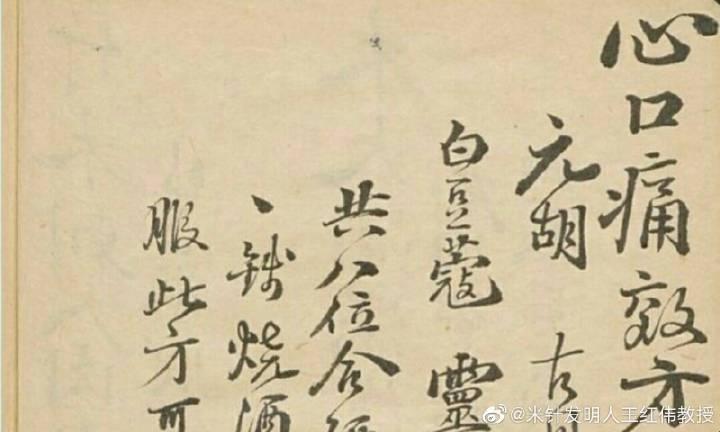 心口痛效方
元胡
白豆蔻 靈
共八位合
、錢燒酒
服此方可
@米针发明人王红伟教授